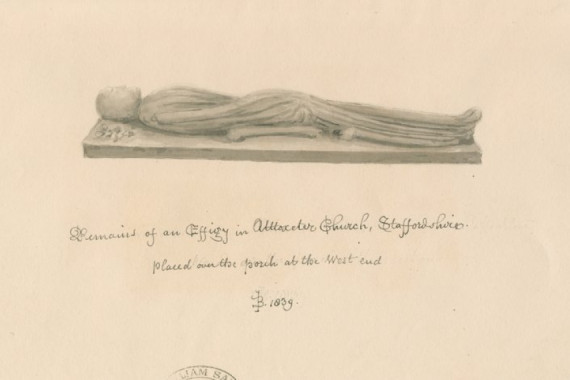 Remains of an Effigy in Uttoxeter Church, Staffordshire.
placed over the porch at the West end
JB. 1839.
IAM SA